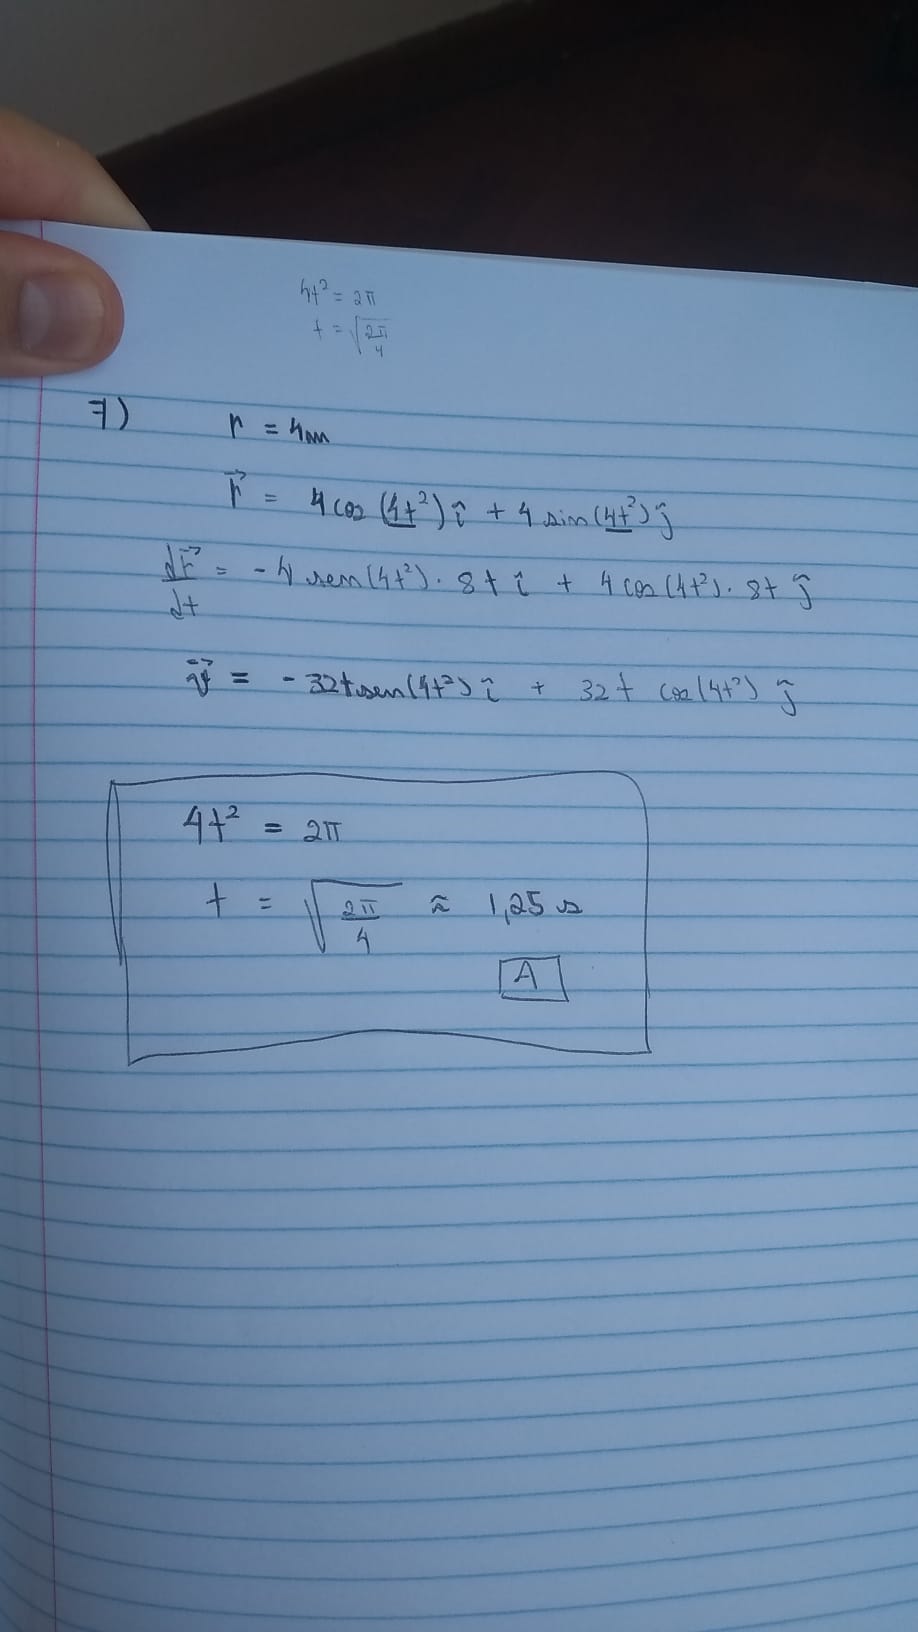 4t² = 2π
t = √(2π/4)
7) r = 4m
r⃗ = 4 cos (4t²) î + 4 sin (4t²) ĵ
dr⃗/dt = - 4 sen (4t²) . 8t î + 4 cos (4t²) . 8t ĵ
v⃗ = - 32t sen (4t²) î + 32t cos (4t²) ĵ
4t² = 2π
t = √(2π/4) ≈ 1,25 s
A